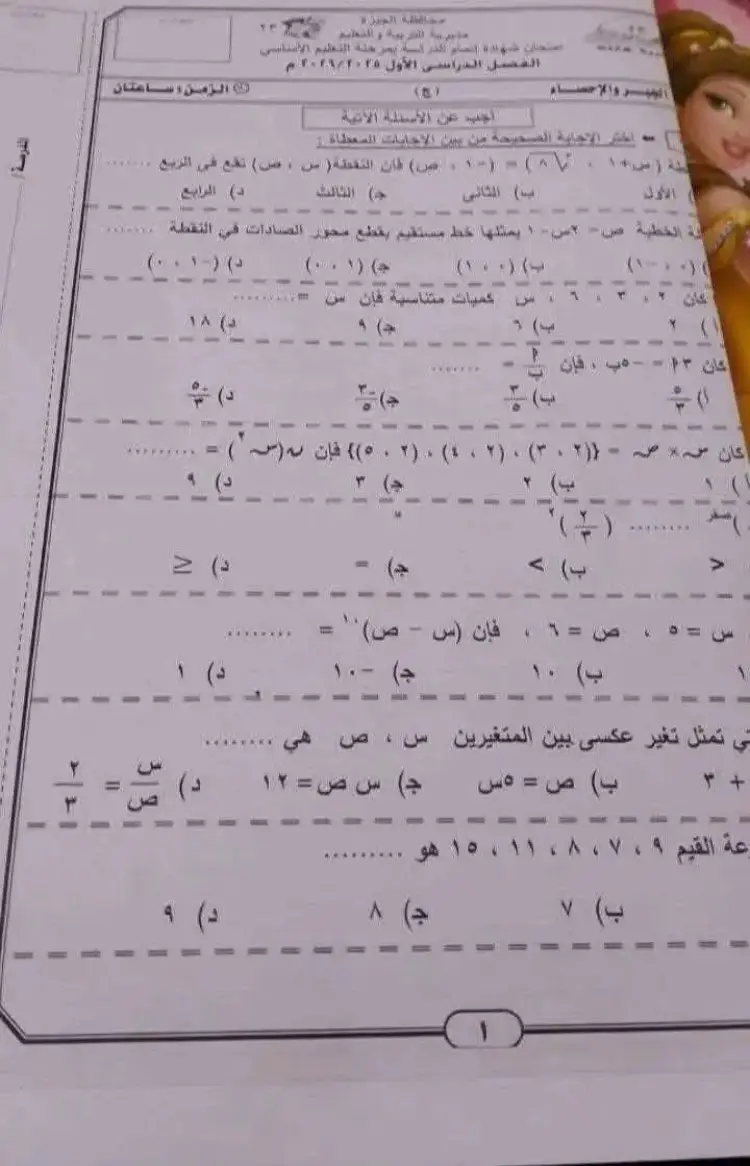 محافظة الجيزة
مديرية التربية والتعليم
امتحان شهادة إتمام الدراسة بمرحلة التعليم الأساسي
الفصل الدراسى الأول ٢٠٢٦/٢٠٢٥ م
الجبر والإحصاء (ج) الزمن: ساعتان
أجب عن الأسئلة الآتية
اختر الإجابة الصحيحة من بين الإجابات المعطاة :
(س+١ ، ∛٨) = (-١ ، ص) فإن النقطة (س ، ص) تقع في الربع ........
الأول ب) الثانى ج) الثالث د) الرابع
الخطية ص = ٢س-١ يمثلها خط مستقيم يقطع محور الصادات في النقطة ........
(٠ ، -١) ب) (٠ ، ١) ج) (١ ، ٠) د) (-١ ، ٠)
كان ٢ ، ٣ ، ٦ ، س كميات متناسبة فإن س = .........
أ) ٢ ب) ٦ ج) ٩ د) ١٨
كان ٣أ = -٥ب ، فإن أ/ب = ........
أ) ٥/٣ ب) ٣/٥ ج) -٣/٥ د) -٥/٣
كان س × ص = {(٢ ، ٣) ، (٢ ، ٤) ، (٢ ، ٥)} فإن ن(س٢) = .........
أ) ١ ب) ٢ ج) ٣ د) ٩
)صفر ........ (٢/٣)٢
< ب) > ج) = د) ≤
س = ٥ ، ص = ٦ ، فإن (س - ص)١٠ = ........
١ ب) ١٠ ج) -١٠ د) ١
تي تمثل تغير عكسى بين المتغيرين س ، ص هي ........
+ ٣ ب) ص = ٥س ج) س ص = ١٢ د) س/ص = ٢/٣
عة القيم ٩ ، ٧ ، ٨ ، ١١ ، ١٥ هو .........
ب) ٧ ج) ٨ د) ٩
١